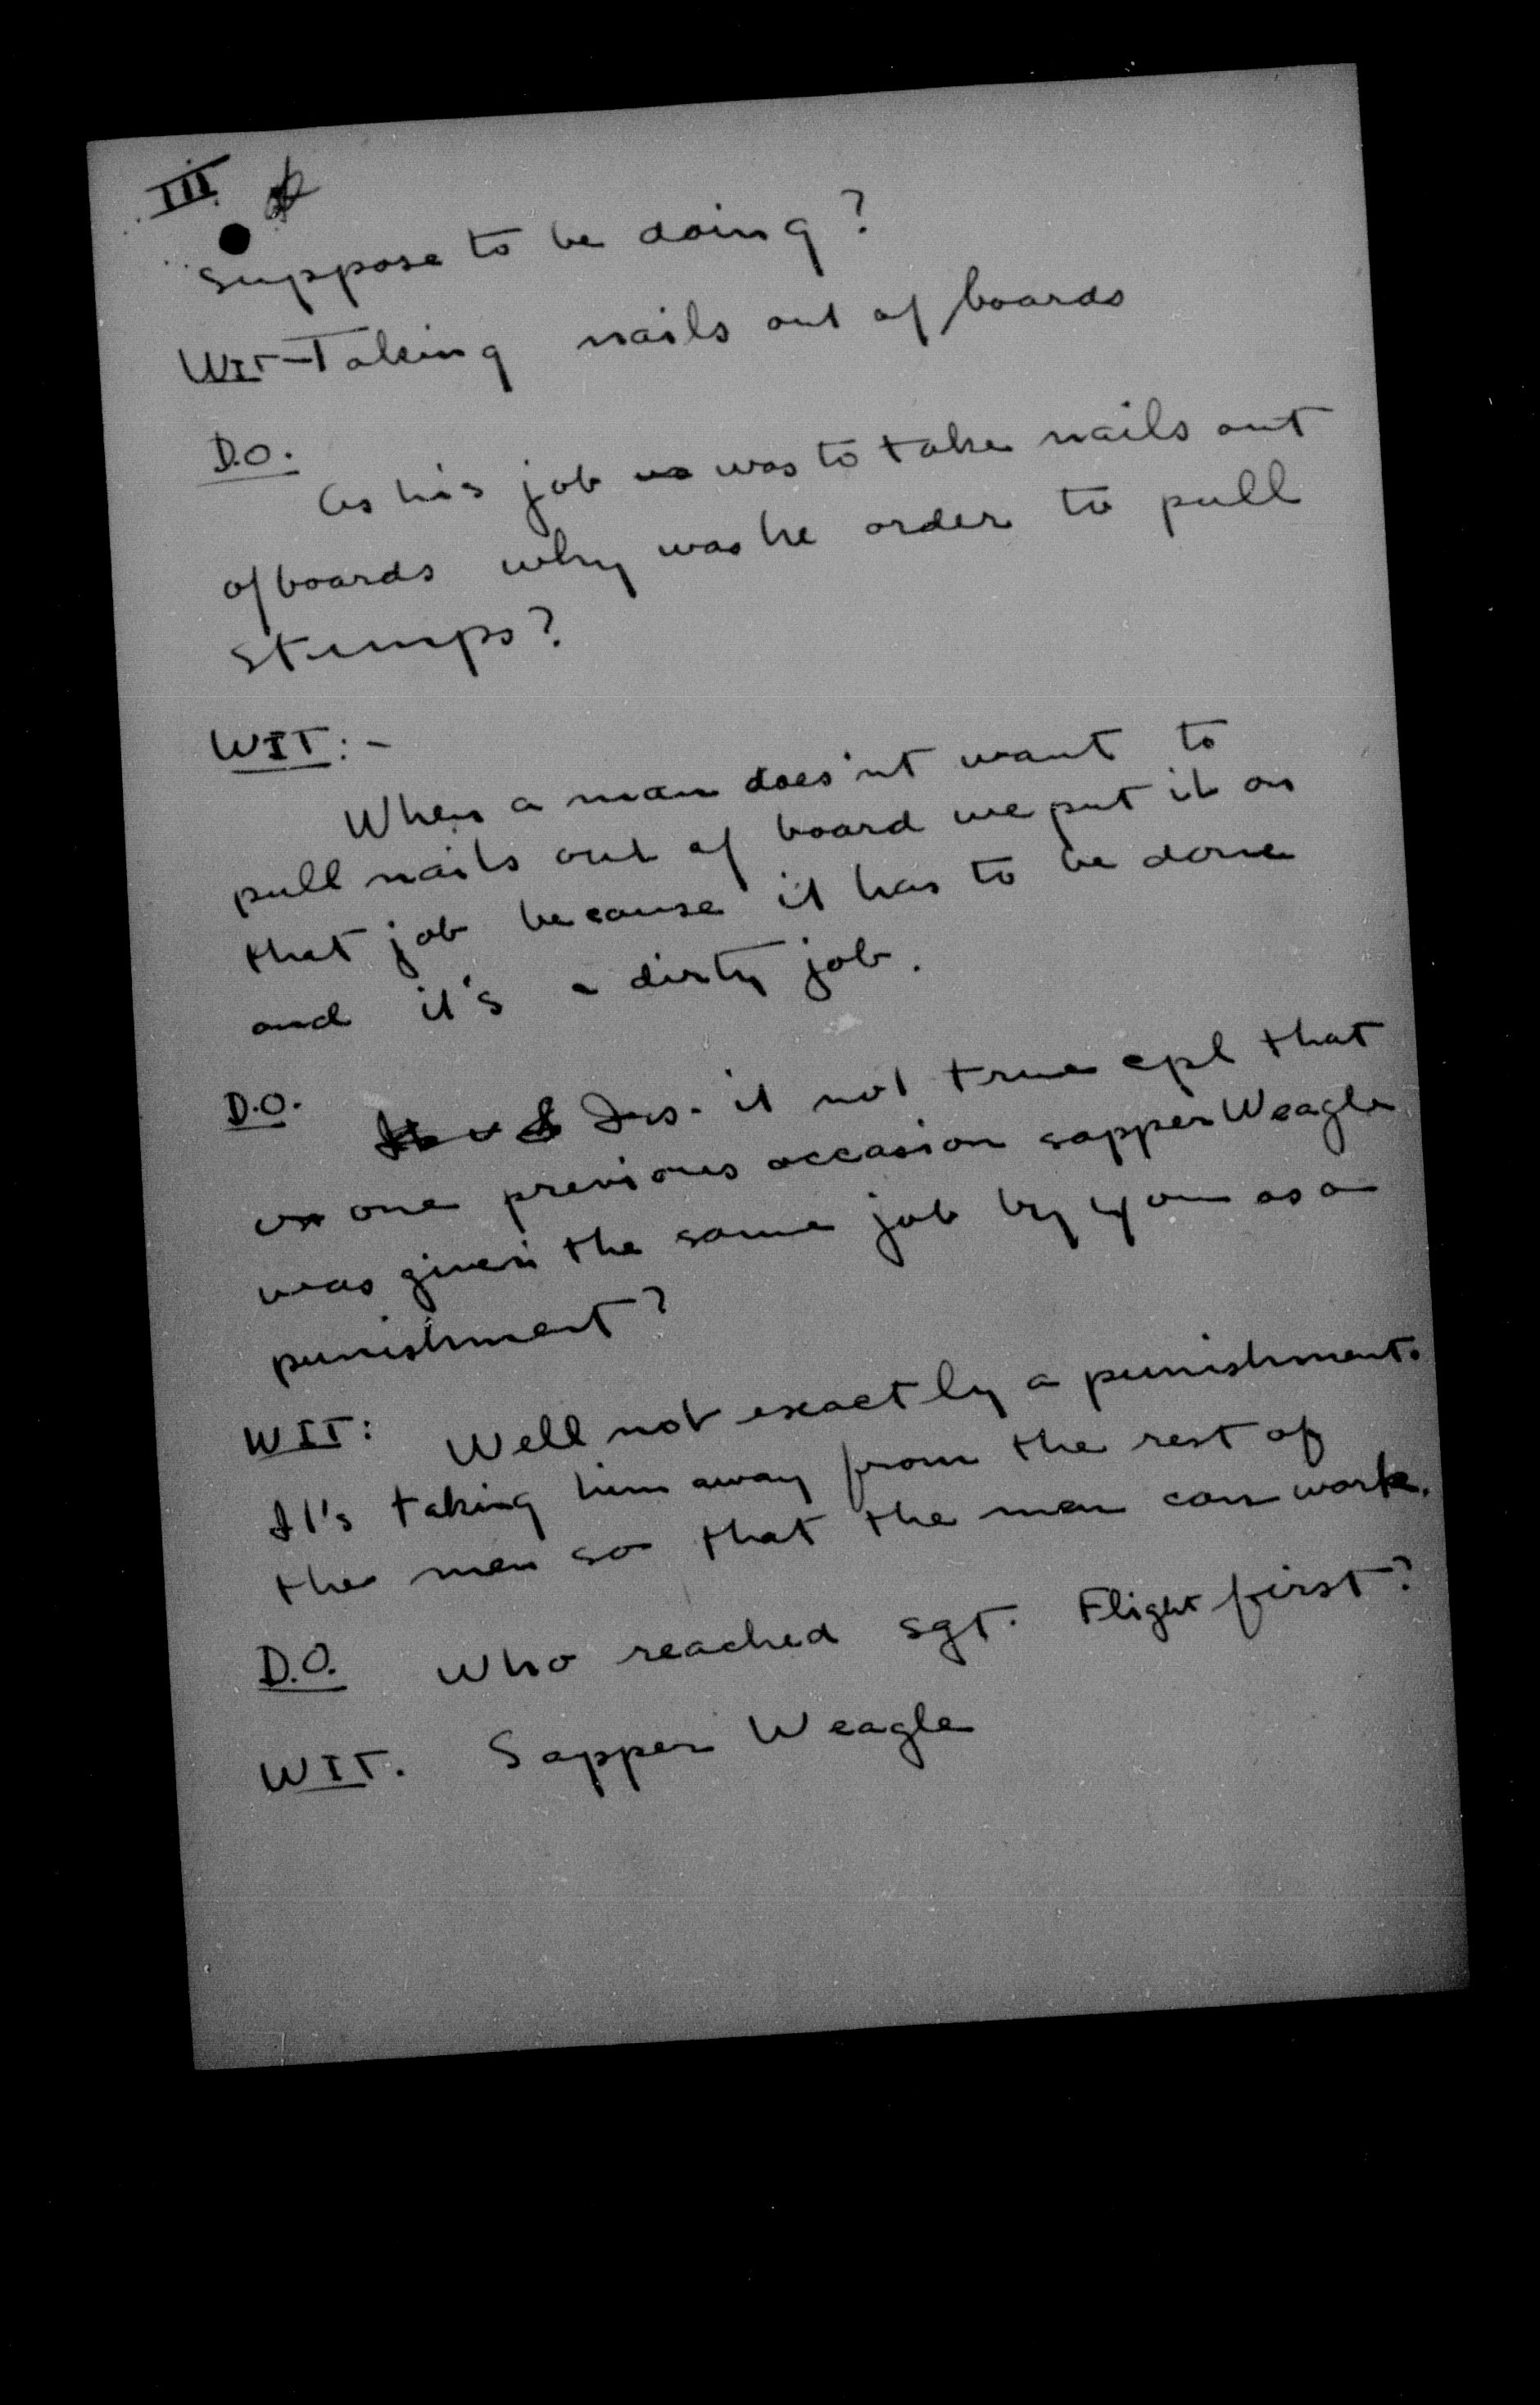 III
suppose to be doing?
WIT - Taking nails out of boards
D.O.
As his job was to take nails out
of boards why was he order to pull
stumps?
WIT:-
When a man does'nt want to
pull nails out of board we put it on
that job because it has to be done
and it's a dirty job.
D.O. Is it not true cpl that
on one previous occasion sapper Weagle
was given the same job by you as a
punishment?
WIT: Well not exactly a punishment.
It's taking him away from the rest of
the men so that the men can work.
D.O. Who reached sgt. Flight first?
WIT. Sapper Weagle